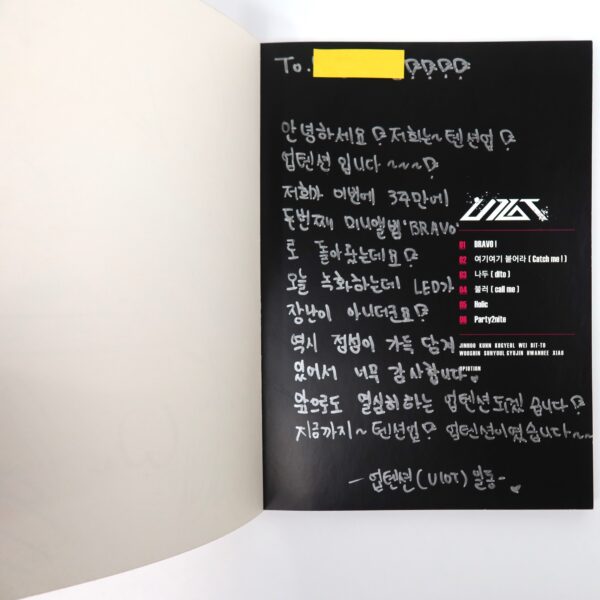 To.
안녕하세요 저희는~ 텐션업
업텐션 입니다 ~~~
저희가 이번에 3주만에
두번째 미니앨범 'BRAVO'
로 돌아왔는데요
오늘 녹화하는데 LED가
장난이 아니더군요
역시 정성이 가득 담겨
있어서 너무 감사합니다.
앞으로도 열심히하는 업텐션되겠습니다
지금까지~ 텐션업 업텐션이였습니다~~
- 업텐션 (U10T) 일동 -
U10T
01 BRAVO!
02 여기여기 붙어라 (Catch me!)
03 나두 (dito)
04 불러 (call me)
05 Holic
06 Party2nite
JINHOO KUHN KOGYEOL WEI BIT-TO
WOOSHIN SUNYOUL GYUJIN HWANHEE XIAO
UP10TION